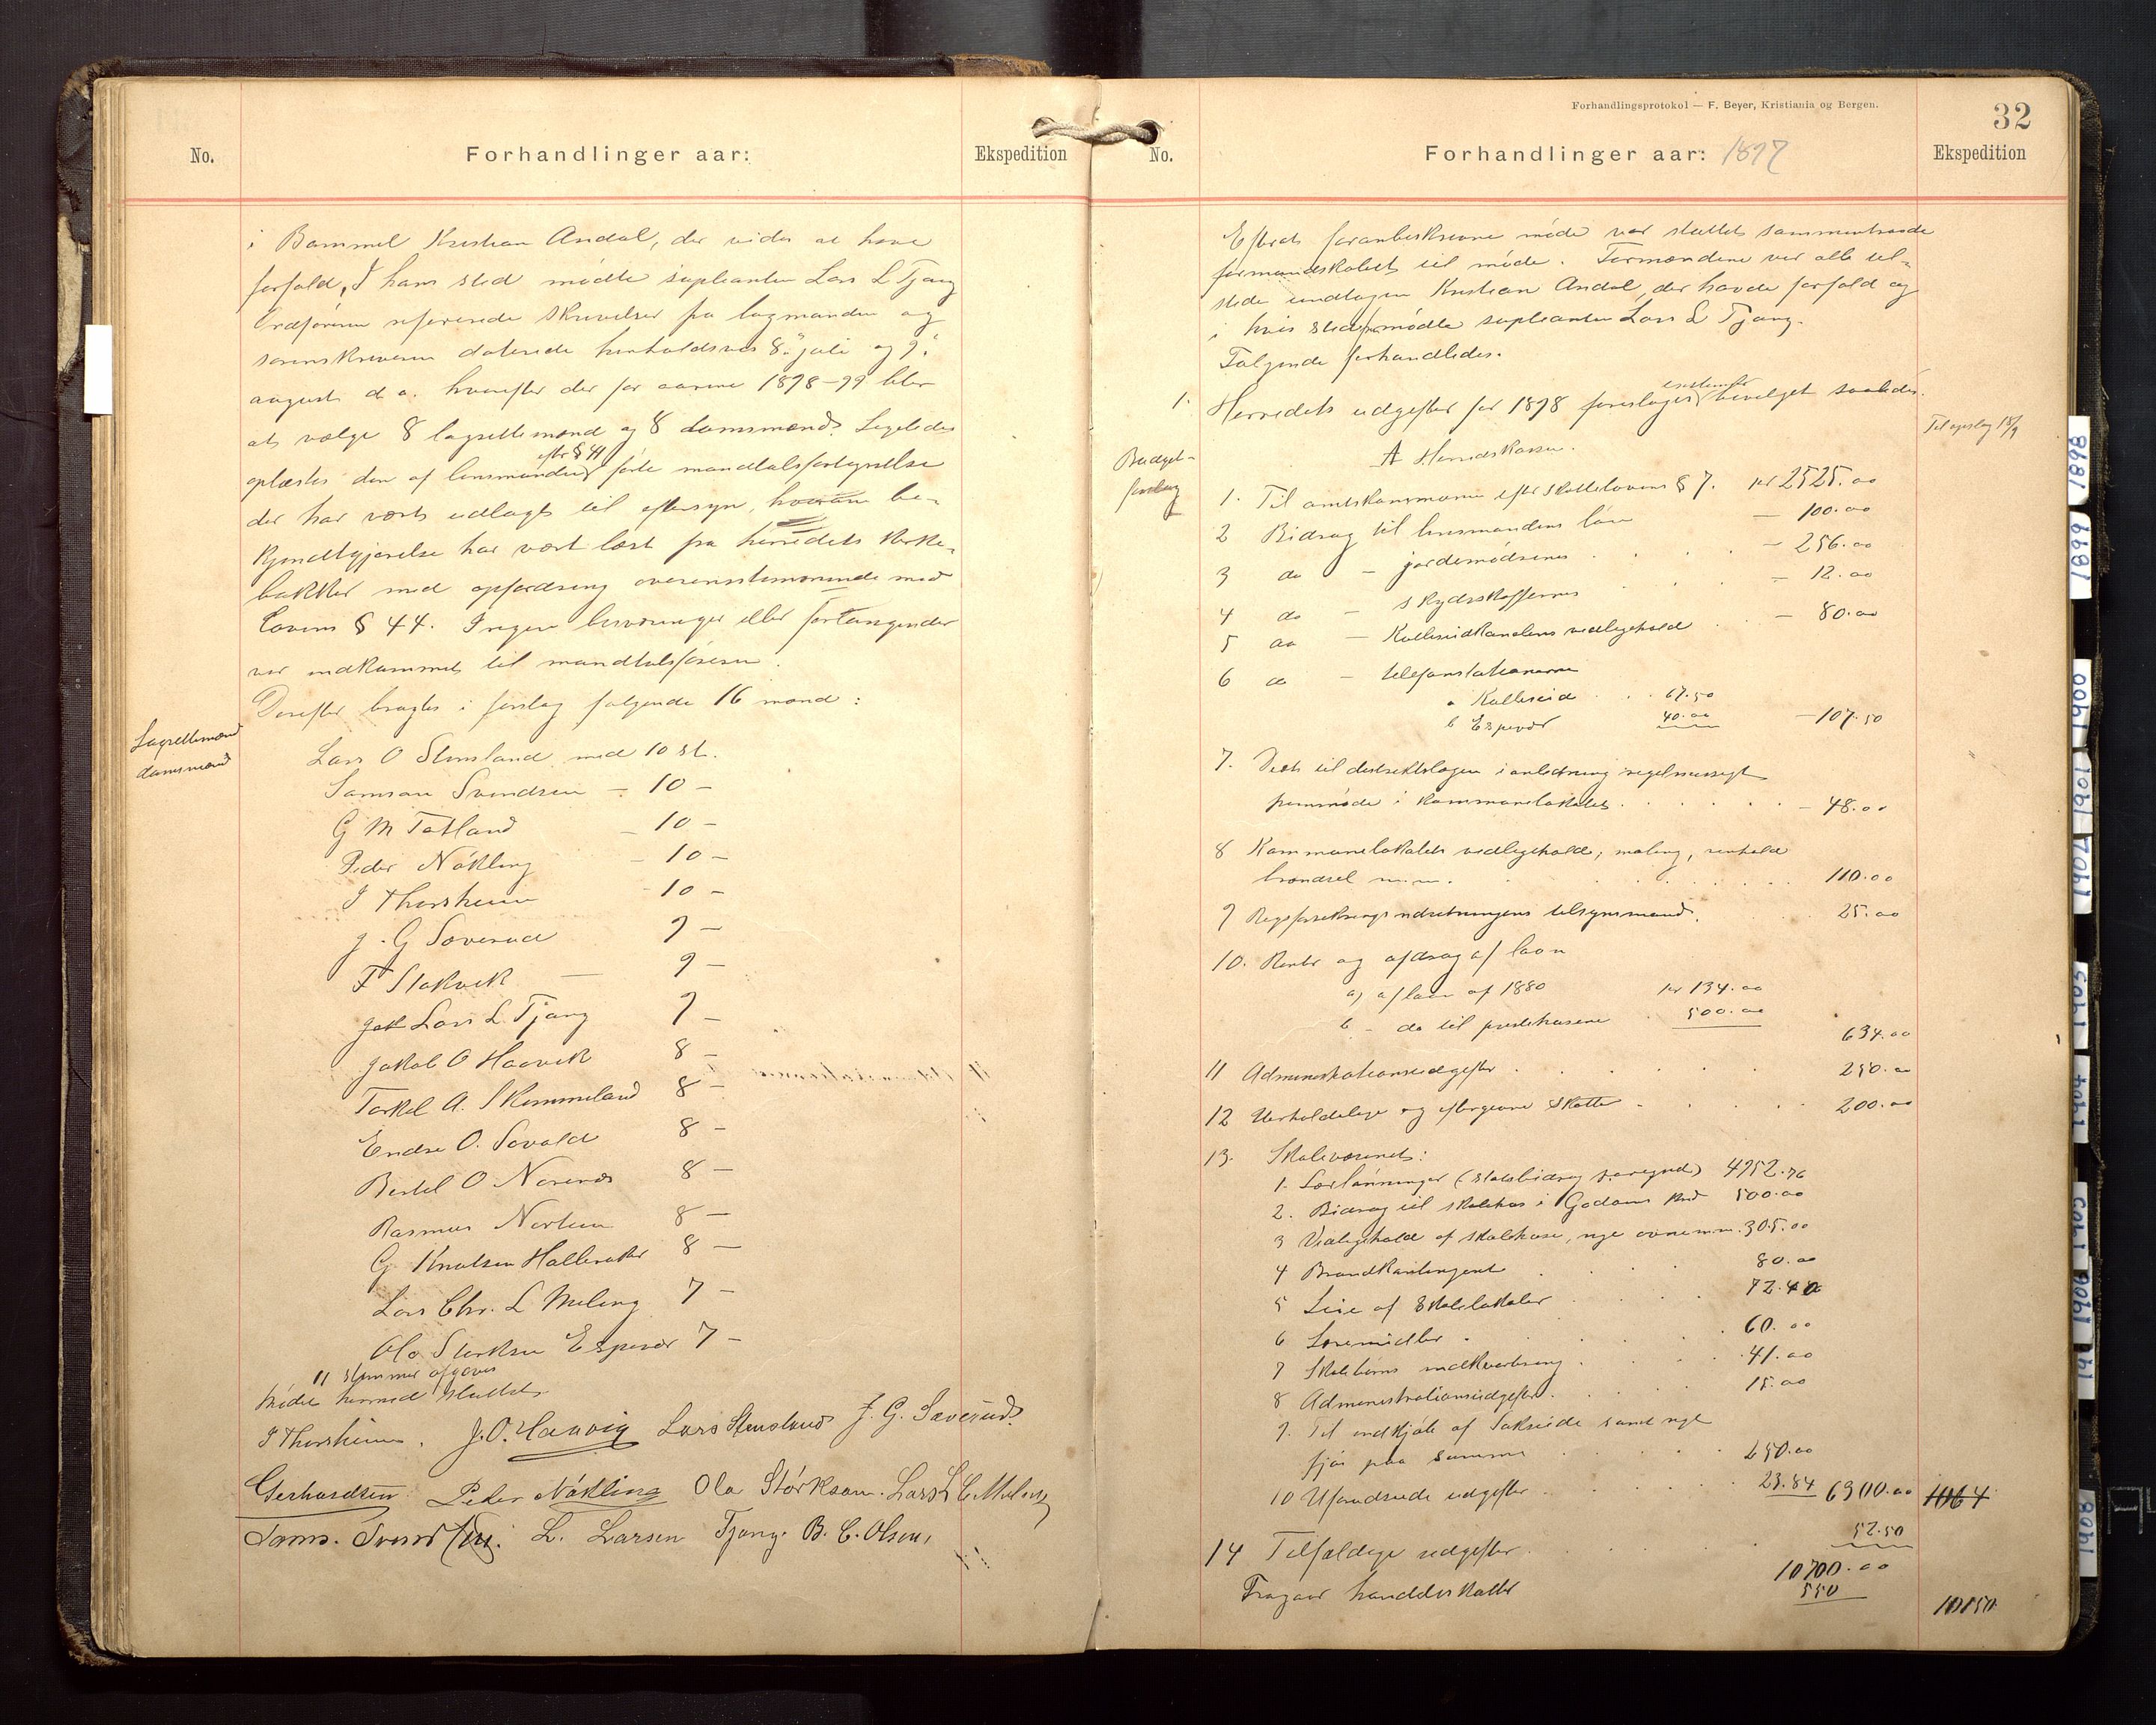 No.
Forhandlinger aar:
Ekspedition
i Bømmel Kristian Andal, der vides at have
forfald, I hans sted mødte supleanten Lars L Tjang
Ordføreren refererede skrivelser fra lagmanden og
sorenskriveren daterede henholdsvis 8de juli og 9de
august d a. hvorefter der for aarene 1898-99 blev
at vælge 8 lagrettemænd og 8 domsmænd. Ligeledes
oplæstes den af lensmanden efter § 41 førte mandtalsfortegnelse
der har været udlagt til eftersyn, hvorom be-
kjendtgjørelse har været læst fra herredets kirke-
bakker med opfordring overensstemmende med
Lovens § 44. Ingen besværinger eller forlangender
var indkommet til mandtalsføreren.
Derefter bragtes i forslag følgende 16 mænd:
Lagrettemænd
domsmænd
Lars O Stensland med 10 st.
Samson Svendsen - 10 -
G M Totland - 10 -
Peder Nøkling - 10 -
I Thorsheim - 10 -
J. G Sæverud 9 -
F Stokvik - 9 -
Lars L. Tjang 9 -
Jakob O Haavik 8 -
Torkel A. Skimmeland 8 -
Endre O. Søvold 8 -
Bertel O Norenæs 8 -
Rasmus Nortun 8 -
G Knutsen Halleraker 8 -
Lars Chr. L Meling 7 -
Ola Størksen Espevær 7 -
11 stemmer afgaves
Mødet hermed sluttet.
I Thorsheim. J. O. Haavig Lars Stensland J. G. Sæverud.
Gerhardsen Peder Nøkling Ola Størksen. Lars L C Meling
Sams. Svendsen. L. Larsen Tjang. B. C. Olsen.
Forhandlingsprotokol — F. Beyer, Kristiania og Bergen.
32
No.
Forhandlinger aar: 1897
Ekspedition
Efterat foranbeskrevne møde var sluttet sammentraadte
formandskabet til møde. Formændene var alle til-
stede undtagen Kristian Andal, der havde forfald og
i hvis sted mødte supleanten Lars L Tjang.
Følgende forhandledes.
1. Herredets udgifter for 1898 foreslages enstemmig bevilget saaledes.
Til opslag 18/9
Budget-
forslag
A Herredskassen.
1. Til amtskommunen efter Skattelovens § 7. kr 2525.00
2 Bidrag til lensmandens løn - 100.00
3 do - jordemødrenes - 256.00
4 do - skydsskafferne - 12.00
5 do - Kulleseidkanalens vedligehold - 80.00
6 do - telefonstationerne
a Kulleseid 67.50
b Espevær 40.00 - 107.50
7. Diæt til distriktslægen i anledning regelmæssigt
fremmøde i kommunelokalet - 48.00
8 Kommunelokalets vedligehold, maling, renhold
brændsel m.m. 110.00
9 Rigsforsikringsindretningens tilsynsmænd. 25.00
10. Renter og afdrag af laan
a) af laan af 1880 kr 134.00
b - do til præstehusene 500.00
634.00
11 Administrationsudgifter 250.00
12 Uerholdelige og eftergivne skatter 200.00
13. Skolevæsenet:
1. Lærlønninger (statsbidrag fraregnet) 4952.76
2. Bidrag til skolehus i Goddøens kred 500.00
3 Vedligehold af skolehuse, nye ovne m.m. 305.00
4 Brandkontingent 80.00
5 Leie af skolelokaler 72.40
6 Læremidler 60.00
7 Skolebørns indkvartering 41.00
8 Administrationsudgifter 15.00
9. Til indkjøb af Sakseide samt nyt
fjøs paa samme 250.00
10 Uforudseede udgifter 23.84 6300.00 1064
14 Tilfældige udgifter 52.50
10700.00
Fragaar handelsskatter 550
10150
1898
1899
1900
1901
1902
1903
1904
1905
1906
1908